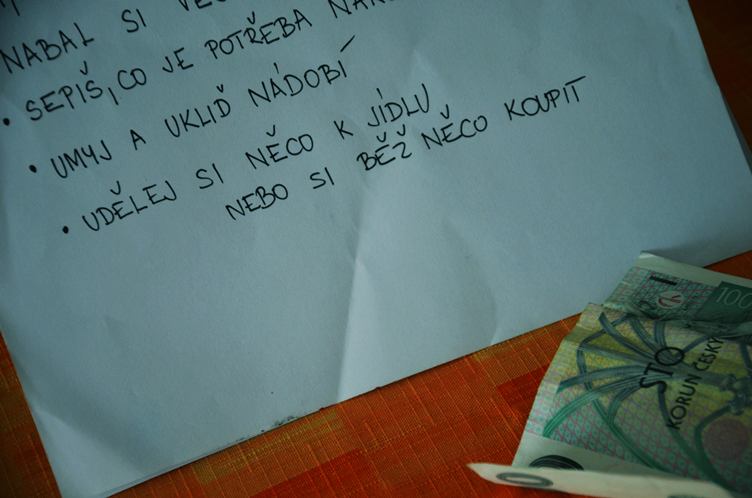 NABAL SI
• SEPIŠ, CO JE POTŘEBA
• UMYJ A UKLIĎ NÁDOBÍ
• UDĚLEJ SI NĚCO K JÍDLU
NEBO SI BĚŽ NĚCO KOUPIT
100
STO
KORUN ČESKÝ